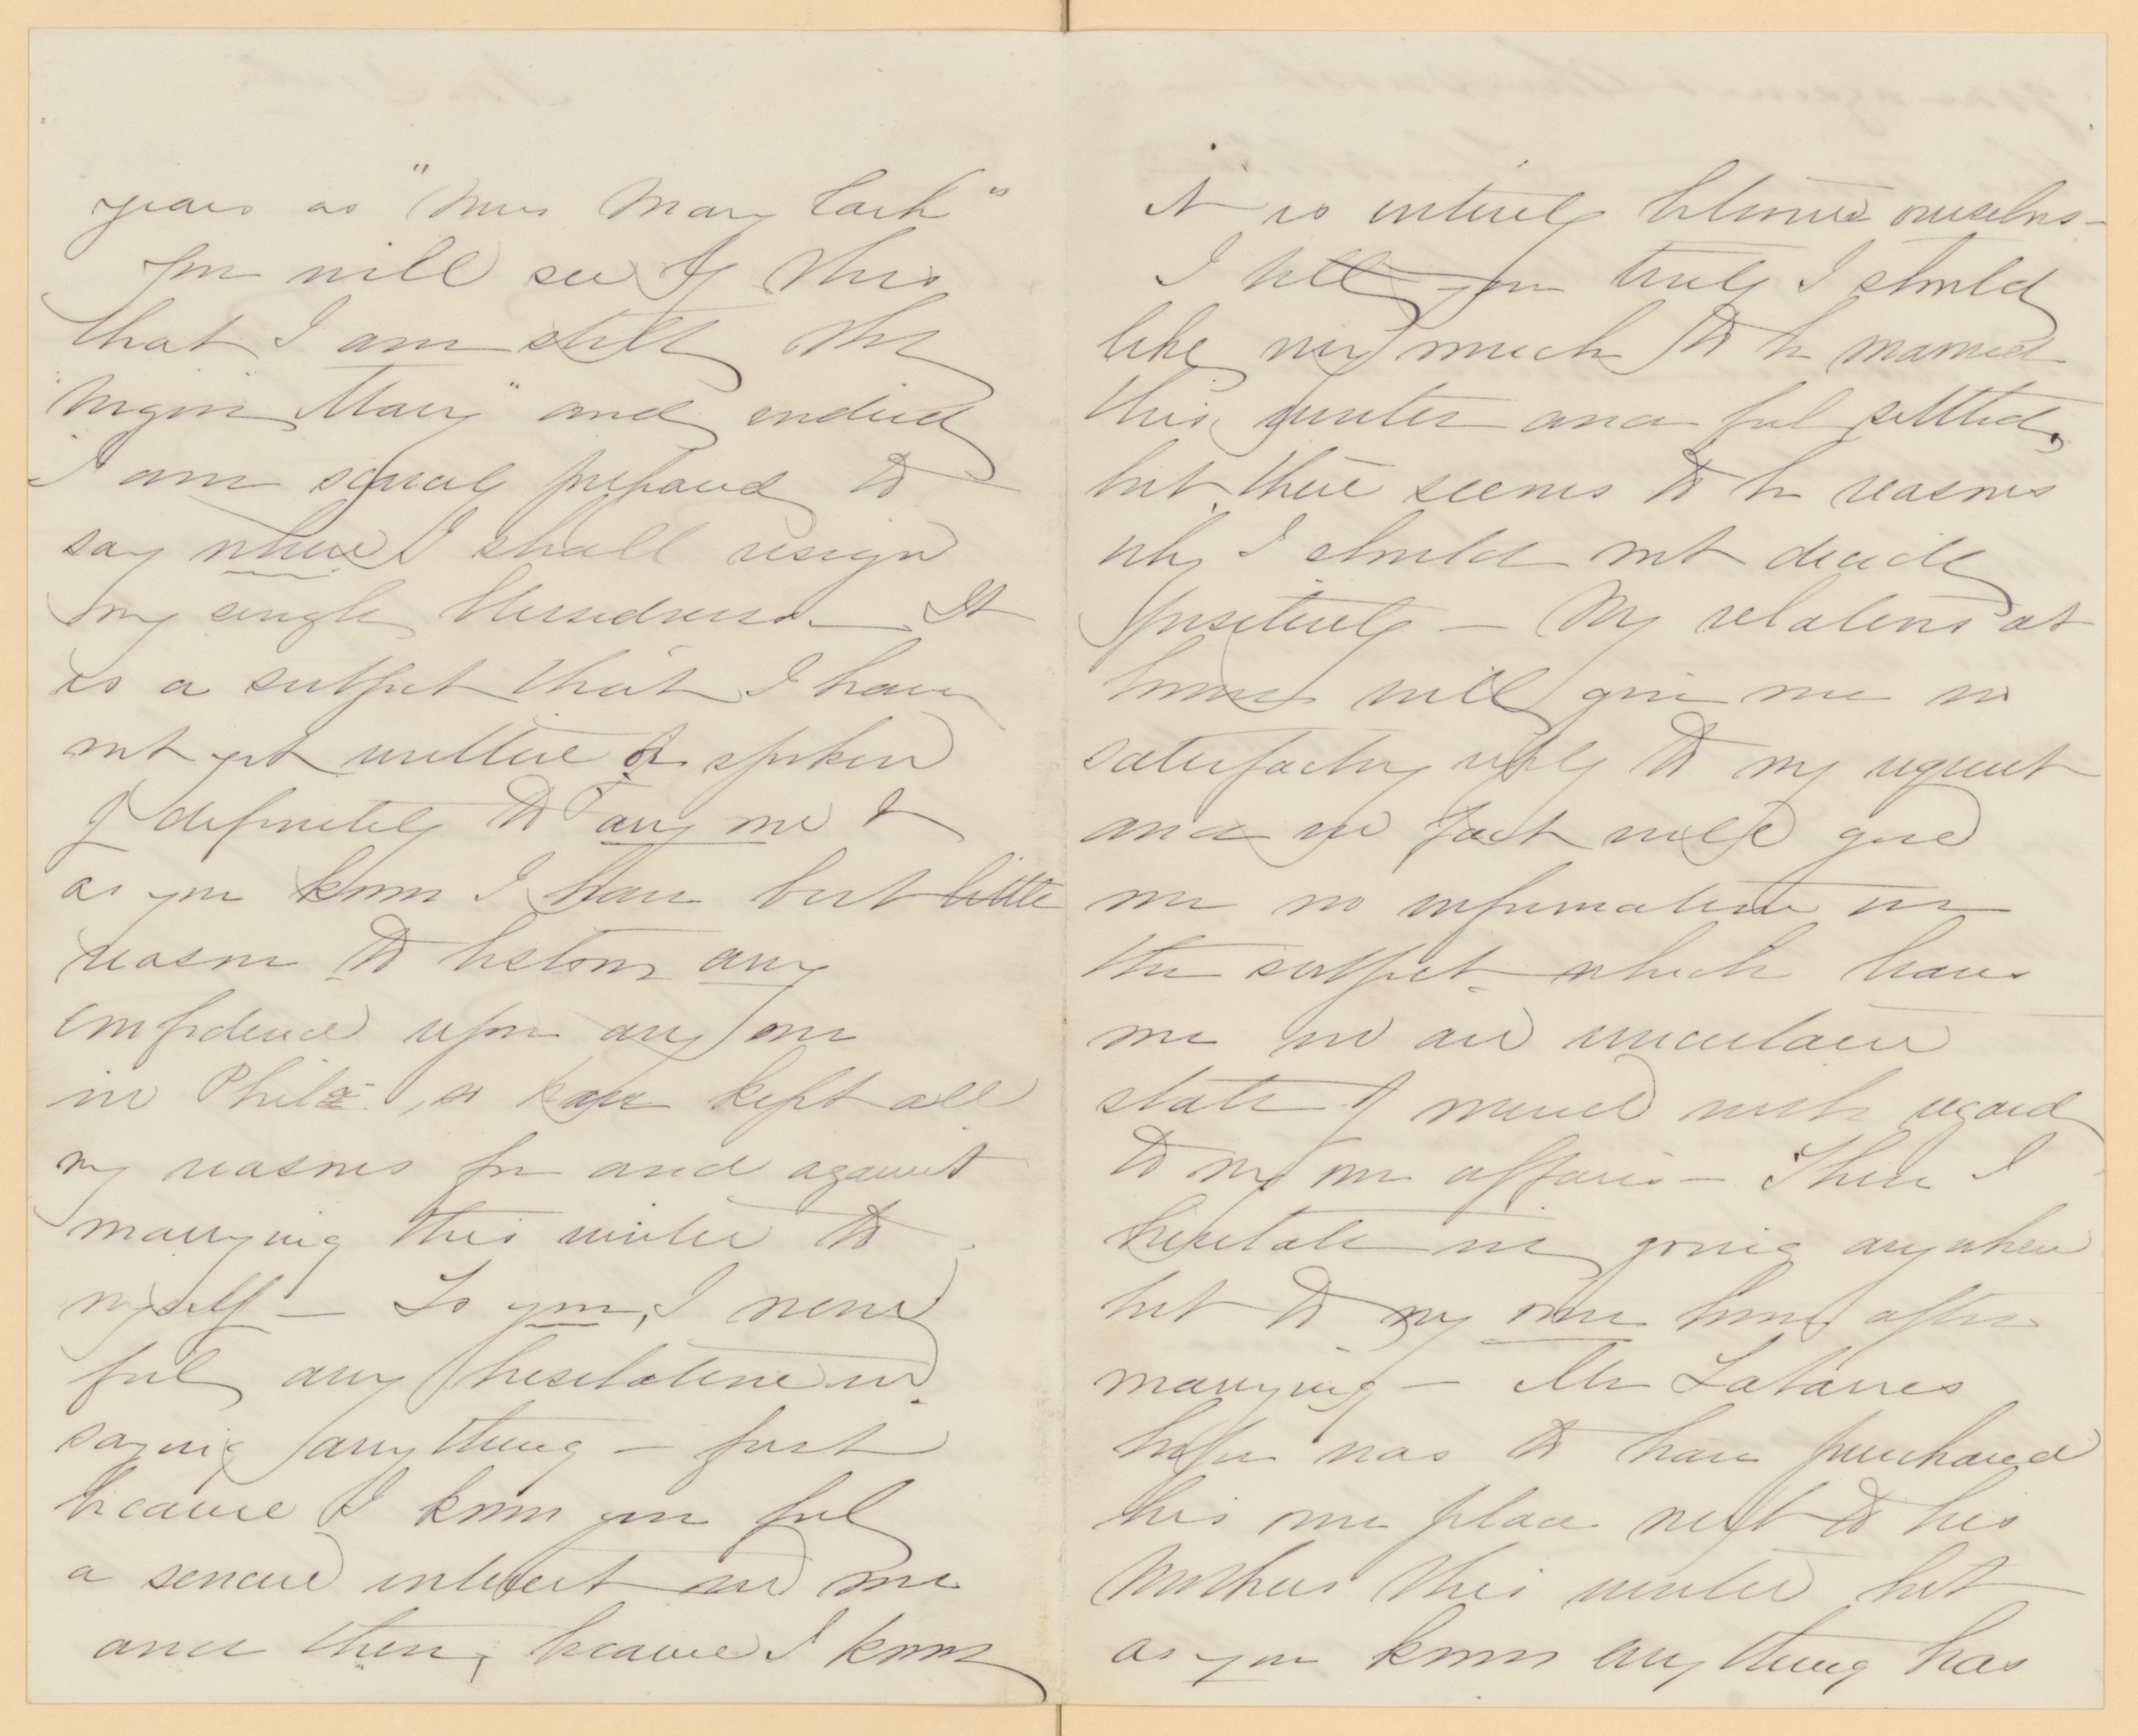 years as "Miss Mary Cash"
You will see by this
that I am still the
"Virgin Mary" and indeed
I am scarcely prepared to
say when I shall resign
my single blessedness. It
is a subject that I have
not yet written or spoken
of definitely to any one &
as you know I have but little
reason to bestow any
confidence upon any one
in Phila, so have kept all
my reasons for and against
marrying this winter to
myself — To you, I never
feel any hesitation in
saying anything — first
because I know you feel
a sincere interest in me
and then, because I know
it is entirely between ourselves —
I tell you truly I should
like very much to be married
this winter and feel settled,
but there seems to be reasons
why I should not decide
positively — My relations at
home will give me no
satisfactory reply to my request
and in fact will give
me no information on
the subject which leaves
me in an uncertain
state of mind with regard
to my own affairs — Then I
hesitate in going anywhere
but to my own home after
marrying — Mr Latanes
hope was to have purchased
his own place next to his
Mothers this winter but
as you know any thing has